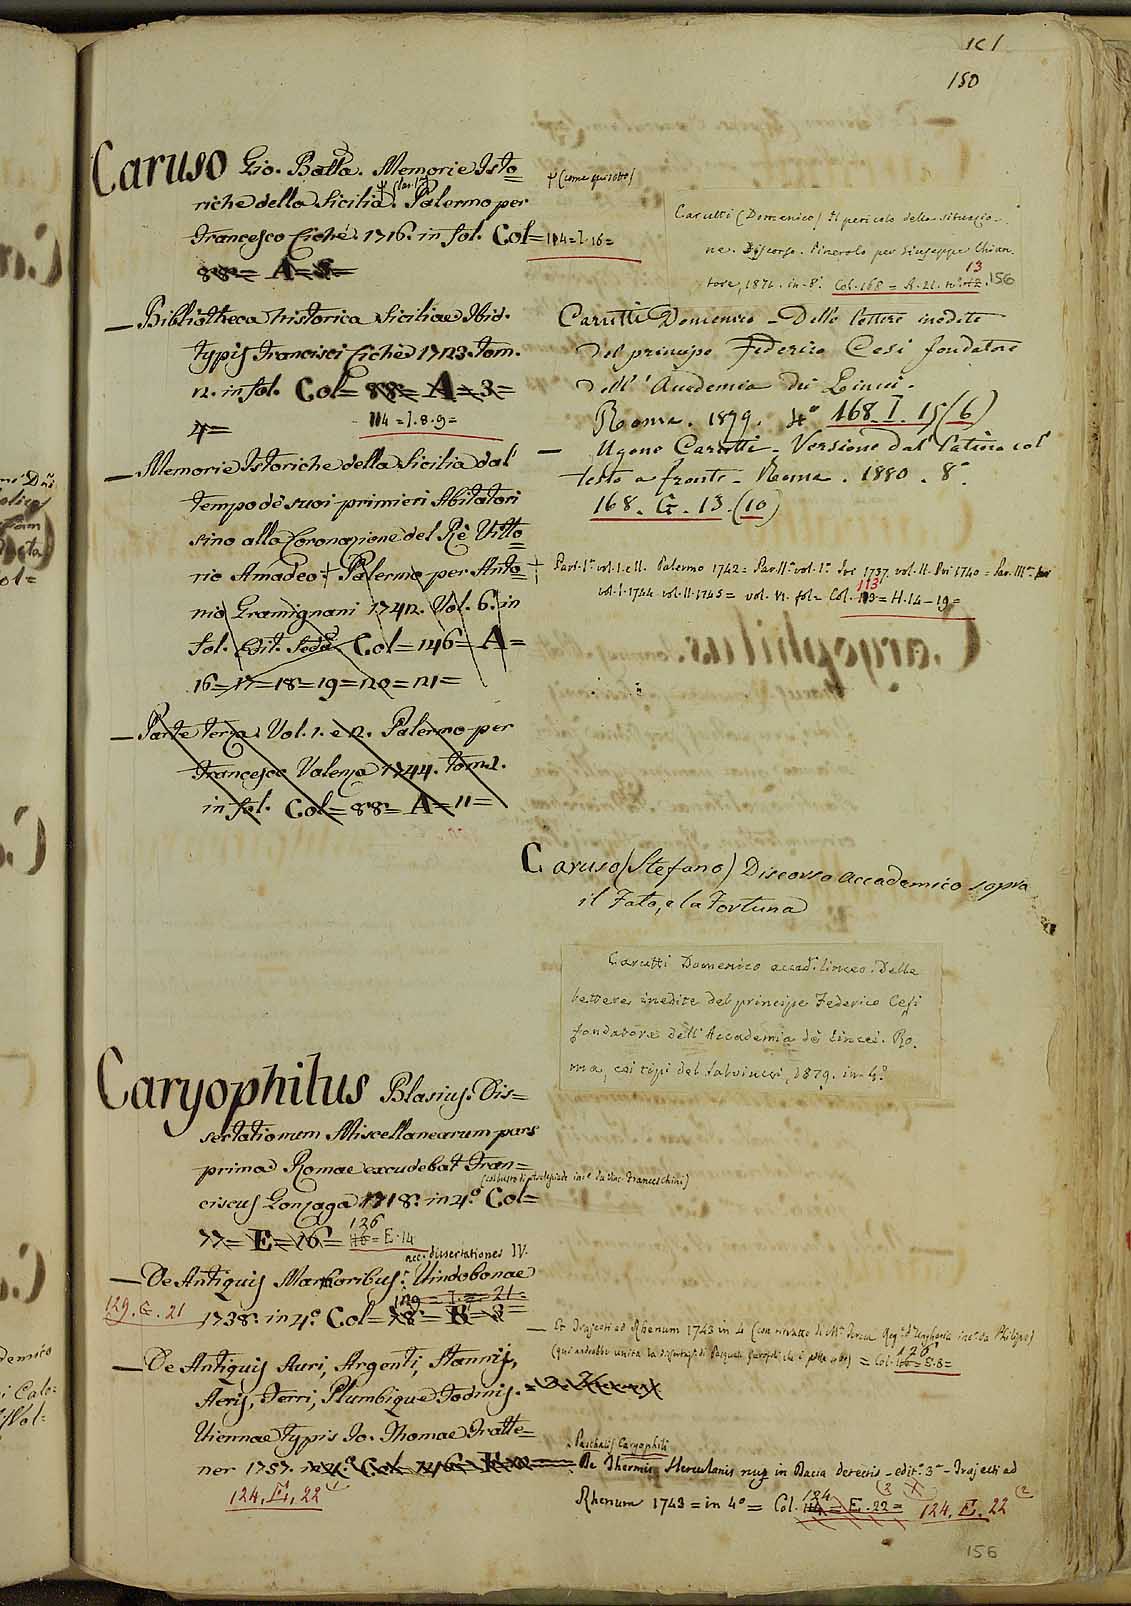 150
Caruso Gio. Batta. Memorie Isto=
riche della Sicilia. Palermo per
Francesco Cichè. 1716. in fol. Col=
114=I.16=
88= A=
— Bibliotheca historica Siciliae Ibid.
typis Francisci Cichè 1723. Tom.
2. in fol. Col= 88= A=3=
4=
114=I.8.9=
— Memorie Istoriche della Sicilia dal
tempo de suoi primieri Abitatori
sino alla Coronazione del Rè Vitto=
rio Amadeo + Palermo per Anto=
nio Gramignani 1742. Vol. 6. in
fol. Edit. Seda Col=146= A=
16=17=18=19=20=21=
— Parte terza. Vol. 1. e 2. Palermo per
Francesco Valenza 1744. Tom. 2.
in fol. Col=88= A=11=
Caryophilus Blasius. Dis=
sertationum Miscellanearum pars
prima Romae excudebat Fran=
ciscus Gonzaga 1718. in 4.° Col=
77= E=16=
126
E.14
acc. dissertationes IV.
— De Antiquis Marmoribus. Vindobonae
129=I.=21=
1738. in 4.° Col=78= B=3=
129.G.21
— De Antiquis Auri, Argenti, Stannis,
Aeris, Ferri, Plumbique Fodinis.
Viennae typis Io. Thomae Tratte=
ner 1757. in 4.° Col
124.E.22
(come qui sotto)
Carutti (Domenico) Il pericolo della situazio-
ne. Discorso. Pinerolo per Giuseppe Chian
tore, 1871. in-8.° Col.168=A.21.n.° 13
156
Carutti Domenico – Delle lettere inedite
del principe Federico Cesi fondatore
dell'Accademia dei Lincei.
Roma. 1879. 4° 168.I.15(6)
— Ugone Carutti – Versione dal latino col
testo a fronte – Roma. 1880. 8°.
168.G.13.(10)
+ Part. I.ª vol. I. e II. Palermo 1742= Par. II.ª vol. I.° Ivi 1737. vol. II. Ivi 1740= Par. III.ª Ivi
vol. I. 1744 vol. II. 1745= vol. VI. fol= Col. 113=H.14–19=
Caruso (Stefano) Discorso accademico sopra
il Fato, e la Fortuna
Carutti Domenico accad. linceo. Delle
lettere inedite del principe Federico Cesi
fondatore dell'Accademia de Lincei. Ro.
ma, coi tipi del Salviucci, 1879. in-4.°
— Et Trajecti ad Rhenum 1743 in 4
= Col. 126 = E.8=
Paschalis Caryophili
De Thermis Herculanis nup in Dacia detectis – edit.° 3ª – Trajecti ad
Rhenum 1743 = in 4° = Col. 124 = E.22= 124.E.22 (2
156